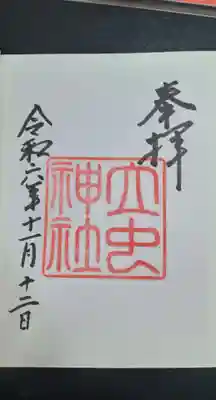 奉拝
大虫
神社
令和六年十一月十二日